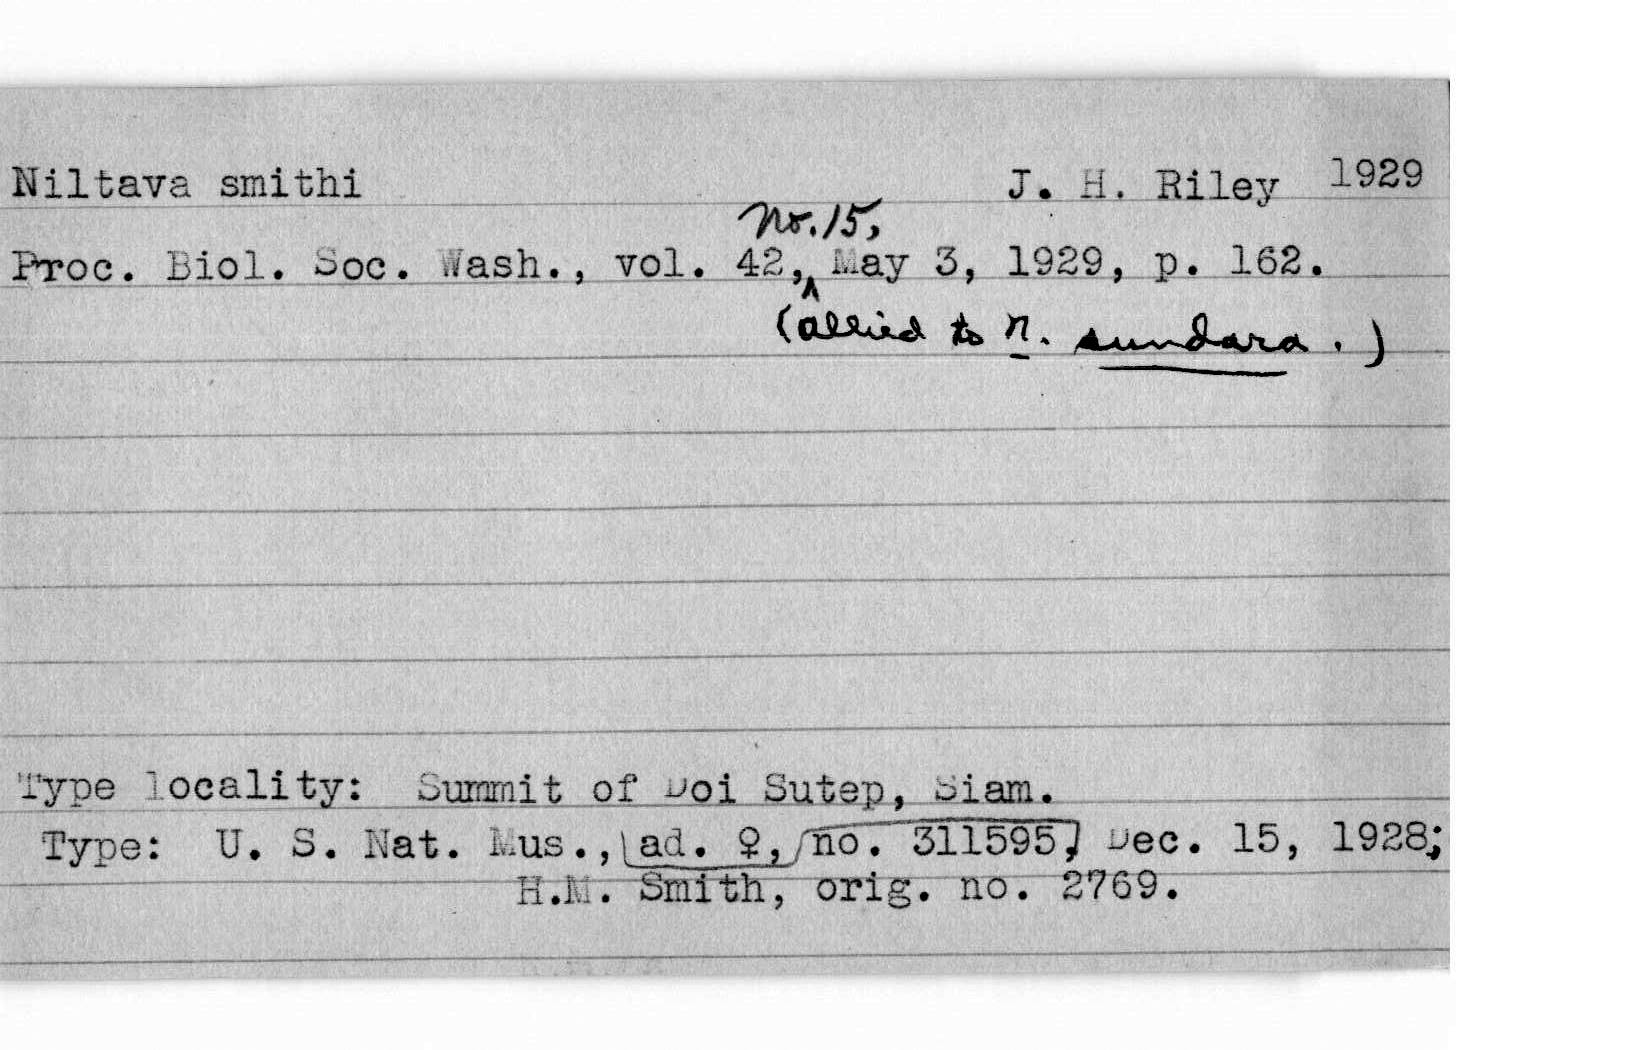 Niltava smithi J. H. Riley 1929
No. 15,
Proc. Biol. Soc. Wash., vol. 42, May 3, 1929, p. 162.
(allied to N. sundara.)
Type locality: Summit of Doi Sutep, Siam.
Type: U. S. Nat. Mus., ad. ♀, no. 311595, Dec. 15, 1928;
H.M. Smith, orig. no. 2769.